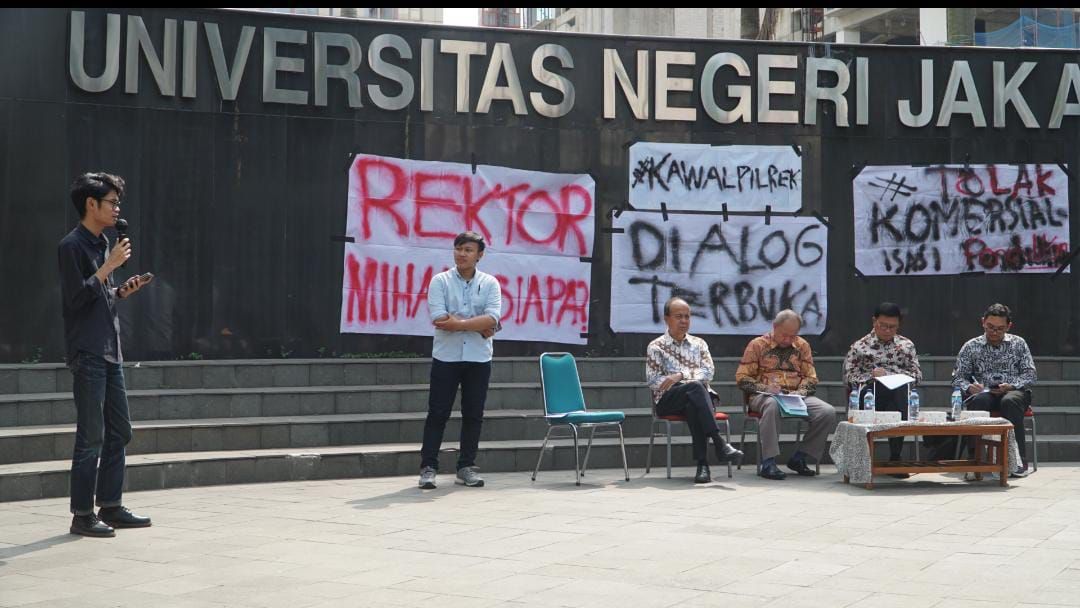 UNIVERSITAS NEGERI JAKA
REKTOR
MIHA SIAPA?
#KAWALPILREK
DIALOG
TERBUKA
# TOLAK
KOMERSIAL-
ISASI Pendidikan